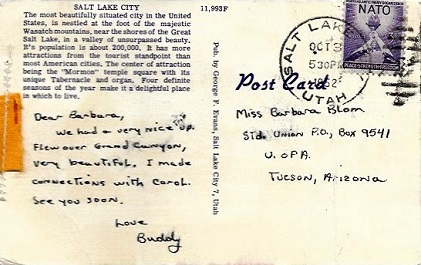 SALT LAKE CITY
The most beautifully situated city in the United
States, is nestled at the foot of the majestic
Wasatch mountains, near the shores of the Great
Salt Lake, in a valley of unsurpassed beauty.
It's population is about 200,000. It has more
attractions from the tourist standpoint than
most American cities. The center of attraction
being the "Mormon" temple square with its
unique Tabernacle and organ. Four definite
seasons of the year make it a delightful place
in which to live.
Dear Barbara,
We had a very nice
Flew over Grand Canyon,
very beautiful. I made
connections with Carol.
See you soon.
Love
Buddy
11,993F
Pub. by George F. Evans, Salt Lake City 7, Utah
SALT LAKE
OCT 3
530PM
1952
UTAH
NATO
Post Card
Miss Barbara Blom
Std. Union P.O., Box 9541
U. of A.
Tucson, Arizona